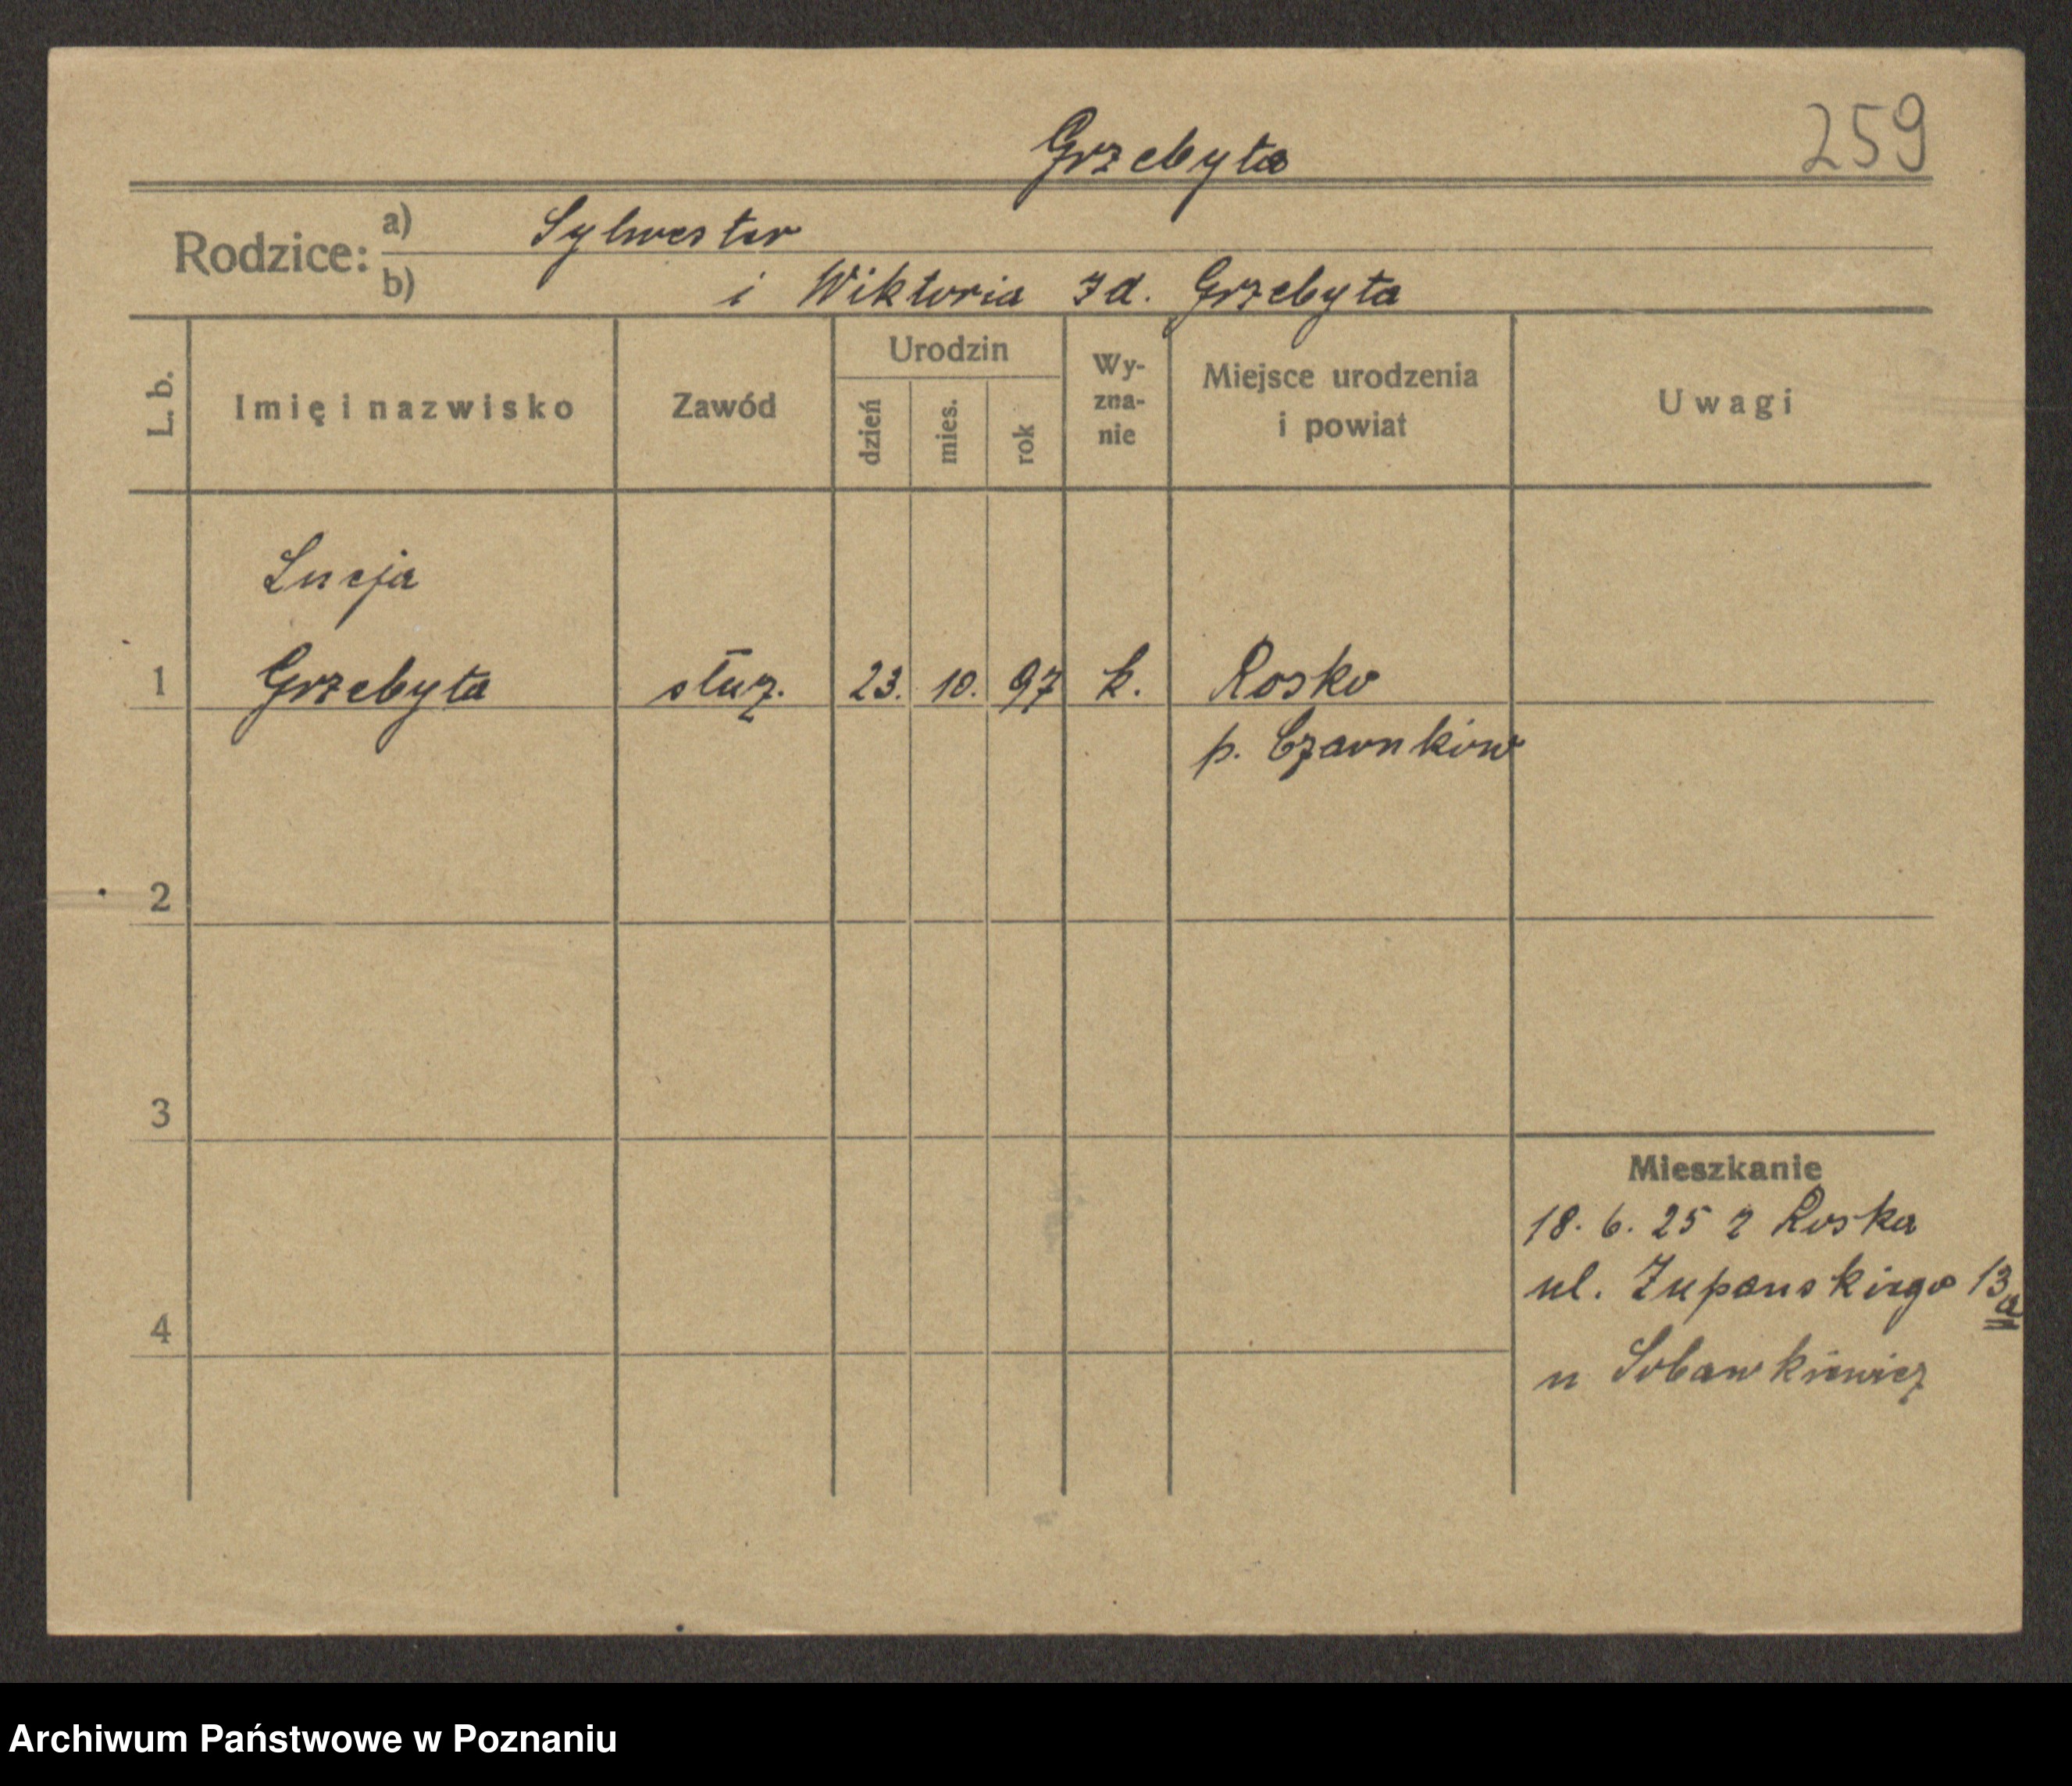 259
Grzebyta
Rodzice: a) Sylwester
b) i Wiktoria zd. Grzebyta
L. b. Imię i nazwisko Zawód Urodzin dzień mies. rok Wy-zna-nie Miejsce urodzenia i powiat Uwagi
Lucja
1 Grzebyta służ. 23. 10. 97 k. Rosko
p. Czarnków
2
3
Mieszkanie
18. 6. 25 z Roska
ul. Zupanskiego 13a
4
u Sobawkiewicz
Archiwum Państwowe w Poznaniu